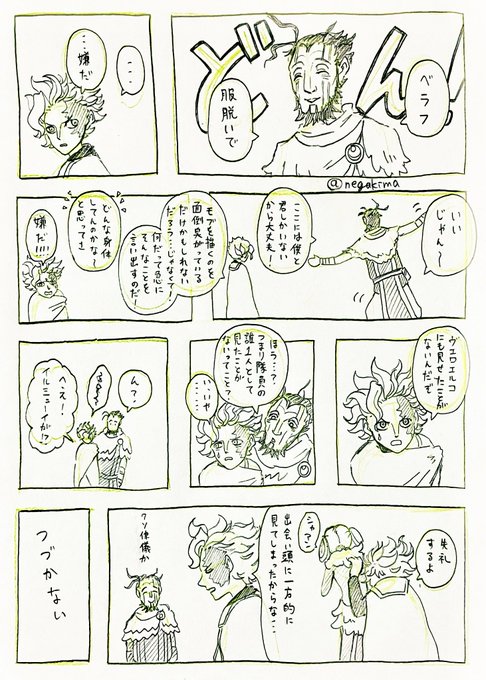 ど
ん!
ベラフ
服脱いで
…
…嫌だ
@negokima
いい
じゃん〜
ここには僕と
君しかいない
から大丈夫!
モブを描くのを
面倒臭がっている
だけかもしれない
だろう…じゃなくて!
何だって急に
そんなことを
言い出すのだ!
どんな身体
してんのかな〜
と思ってさ
嫌だ!!!!
ヴエロエルコ
にも見せたことが
ないんだぞ
ほう…?
つまり隊員の
誰1人として
見たことが
ないってこと?
い…いや
……
ん?
へえ!
イルミューイが!?
失礼
するよ
シャアン
出会い頭に一方的に
見てしまったからな…
クソ律儀か
つづかない